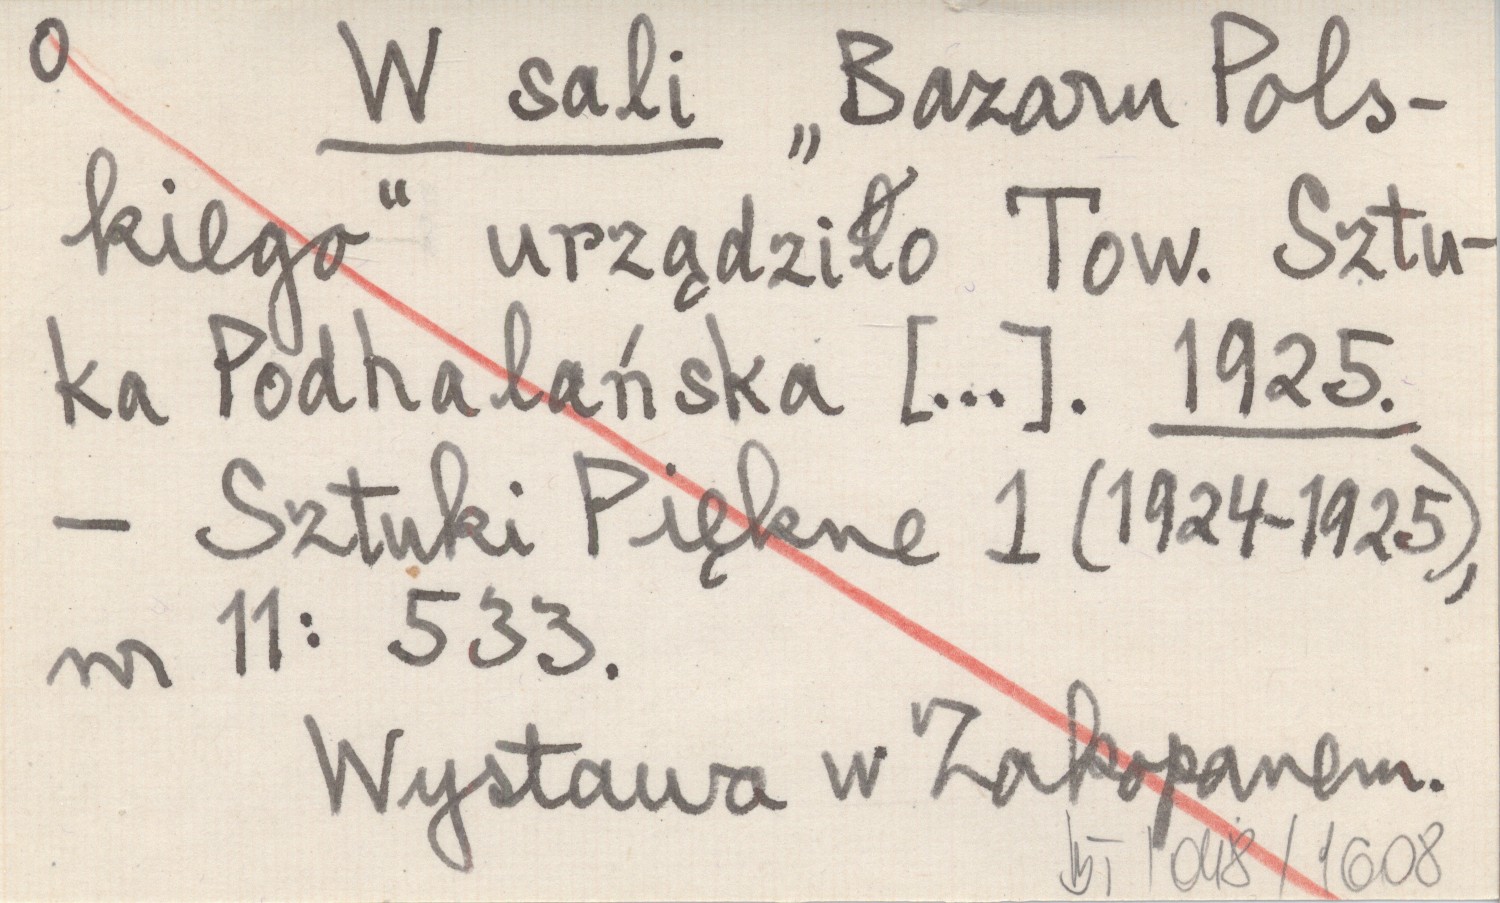 O W sali „Bazaru Pols-
kiego" urządziło Tow. Sztu-
ka Podhalańska [...]. 1925.
— Sztuki Piękne 1 (1924-1925),
nr 11: 533.
Wystawa w Zakopanem.
/ 048 / 1608